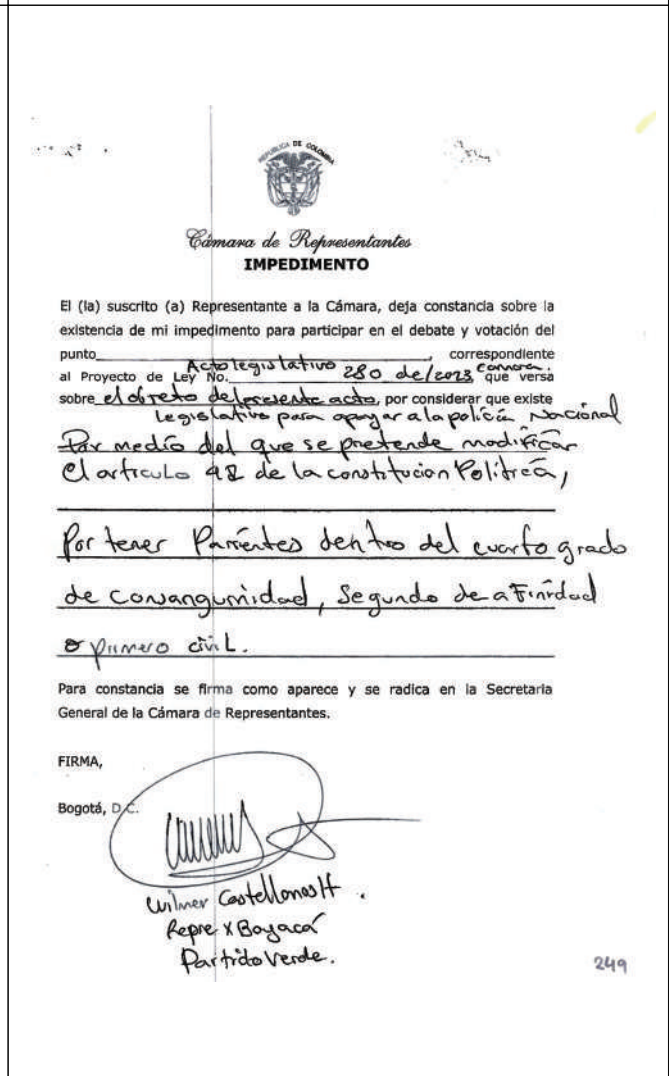 REPUBLICA DE COLOMBIA
Cámara de Representantes
IMPEDIMENTO
El (la) suscrito (a) Representante a la Cámara, deja constancia sobre la
existencia de mi impedimento para participar en el debate y votación del
punto, correspondiente
al Proyecto de Ley No. Acto legislativo 280 de/2023 Camara. que versa
sobre el objeto del presente acto, por considerar que existe
legislativo para apoyar a la policía Nacional
Por medio del que se pretende modificar
el articulo 48 de la constitucion Política,
Por tener Parientes dentro del cuarto grado
de consanguinidad, Segundo de afinidad
o primero civil.
Para constancia se firma como aparece y se radica en la Secretaria
General de la Cámara de Representantes.
FIRMA,
Bogotá, D.C.
Wilmer Castellanos H.
Repre x Boyacá
Partido Verde.
249